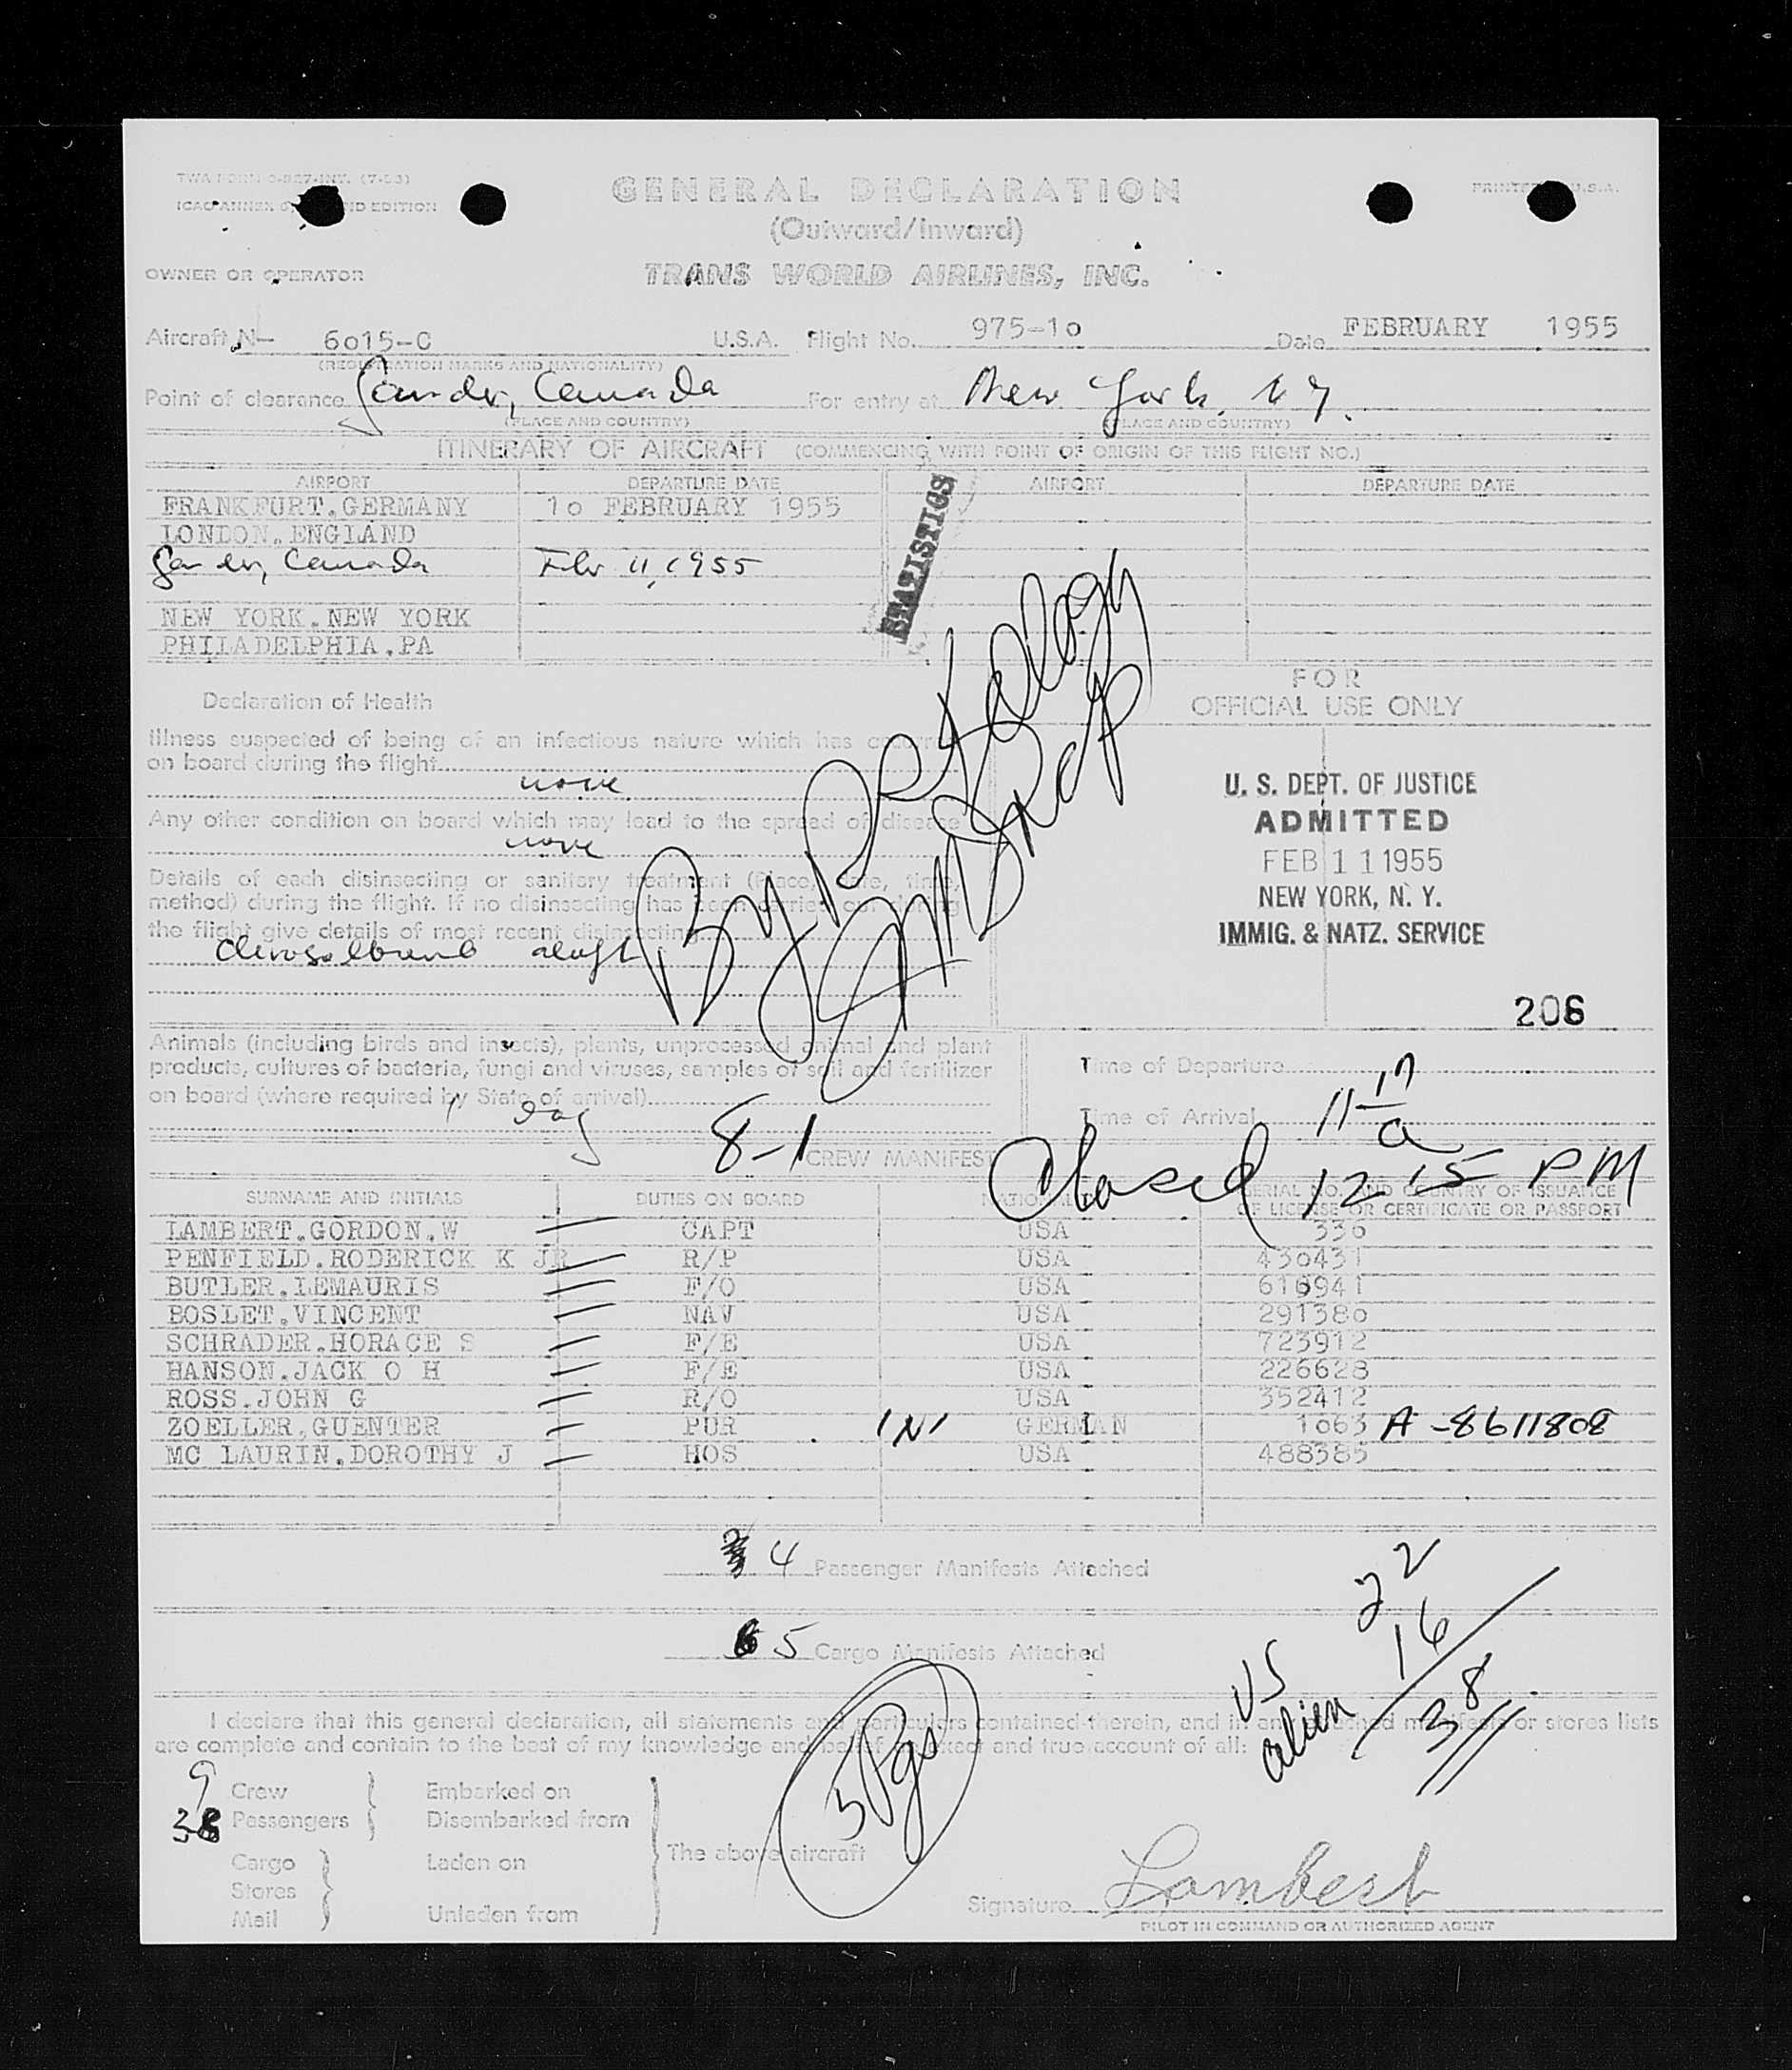 GENERAL DECLARATION
(Outward/Inward)
PRINTED U.S.A.
OWNER OR OPERATOR TRANS WORLD AIRLINES, INC.
Aircraft N- 6015-C U.S.A. Flight No. 975-10 Date FEBRUARY 1955
(REGISTRATION MARKS AND NATIONALITY)
Point of clearance Gander, Canada For entry at New York, N.Y.
(PLACE AND COUNTRY) (PLACE AND COUNTRY)
ITINERARY OF AIRCRAFT (COMMENCING WITH POINT OF ORIGIN OF THIS FLIGHT NO.)
AIRPORT DEPARTURE DATE AIRPORT DEPARTURE DATE
FRANKFURT.GERMANY 10 FEBRUARY 1955
LONDON.ENGLAND
Gander, Canada Feb 11, 1955
NEW YORK.NEW YORK
PHILADELPHIA.PA
STATISTICS
FOR
OFFICIAL USE ONLY
Declaration of Health
Illness suspected of being of an infectious nature which has
on board during the flight
none
Any other condition on board which may lead to the spread of disease
none
Details of each disinsecting or sanitary treatment (Place, date, time,
method) during the flight. If no disinsecting has been carried out during
the flight give details of most recent disinsecting
U. S. DEPT. OF JUSTICE
ADMITTED
FEB 11 1955
NEW YORK, N. Y.
IMMIG. & NATZ. SERVICE
206
Animals (including birds and insects), plants, unprocessed animal and plant
products, cultures of bacteria, fungi and viruses, samples of soil and fertilizer
on board (where required by State of arrival)
1 dog
8-1
Time of Departure
Time of Arrival 11 17 a
Closed 12 15 PM
CREW MANIFEST
SURNAME AND INITIALS DUTIES ON BOARD SERIAL NO. AND COUNTRY OF ISSUANCE
OF LICENSE OR CERTIFICATE OR PASSPORT
LAMBERT.GORDON.W CAPT USA 336
PENFIELD.RODERICK K JR R/P USA 430431
BUTLER.LEMAURIS F/O USA 616941
BOSLET.VINCENT NAV USA 291380
SCHRADER.HORACE S F/E USA 723912
HANSON.JACK O H F/E USA 226628
ROSS.JOHN G R/O USA 352412
ZOELLER.GUENTER PUR GERMAN 1063 A-8611808
MC LAURIN.DOROTHY J HOS USA 488385
4 Passenger Manifests Attached
5 Cargo Manifests Attached
US 22
alien 16
38
5 Pgs
I declare that this general declaration, all statements and particulars contained therein, and in any attached manifests or stores lists
are complete and contain to the best of my knowledge and belief exact and true account of all:
9 Crew Embarked on
38 Passengers Disembarked from
The above aircraft
Cargo Laden on
Stores
Mail Unladen from
Signature Lambert
PILOT IN COMMAND OR AUTHORIZED AGENT